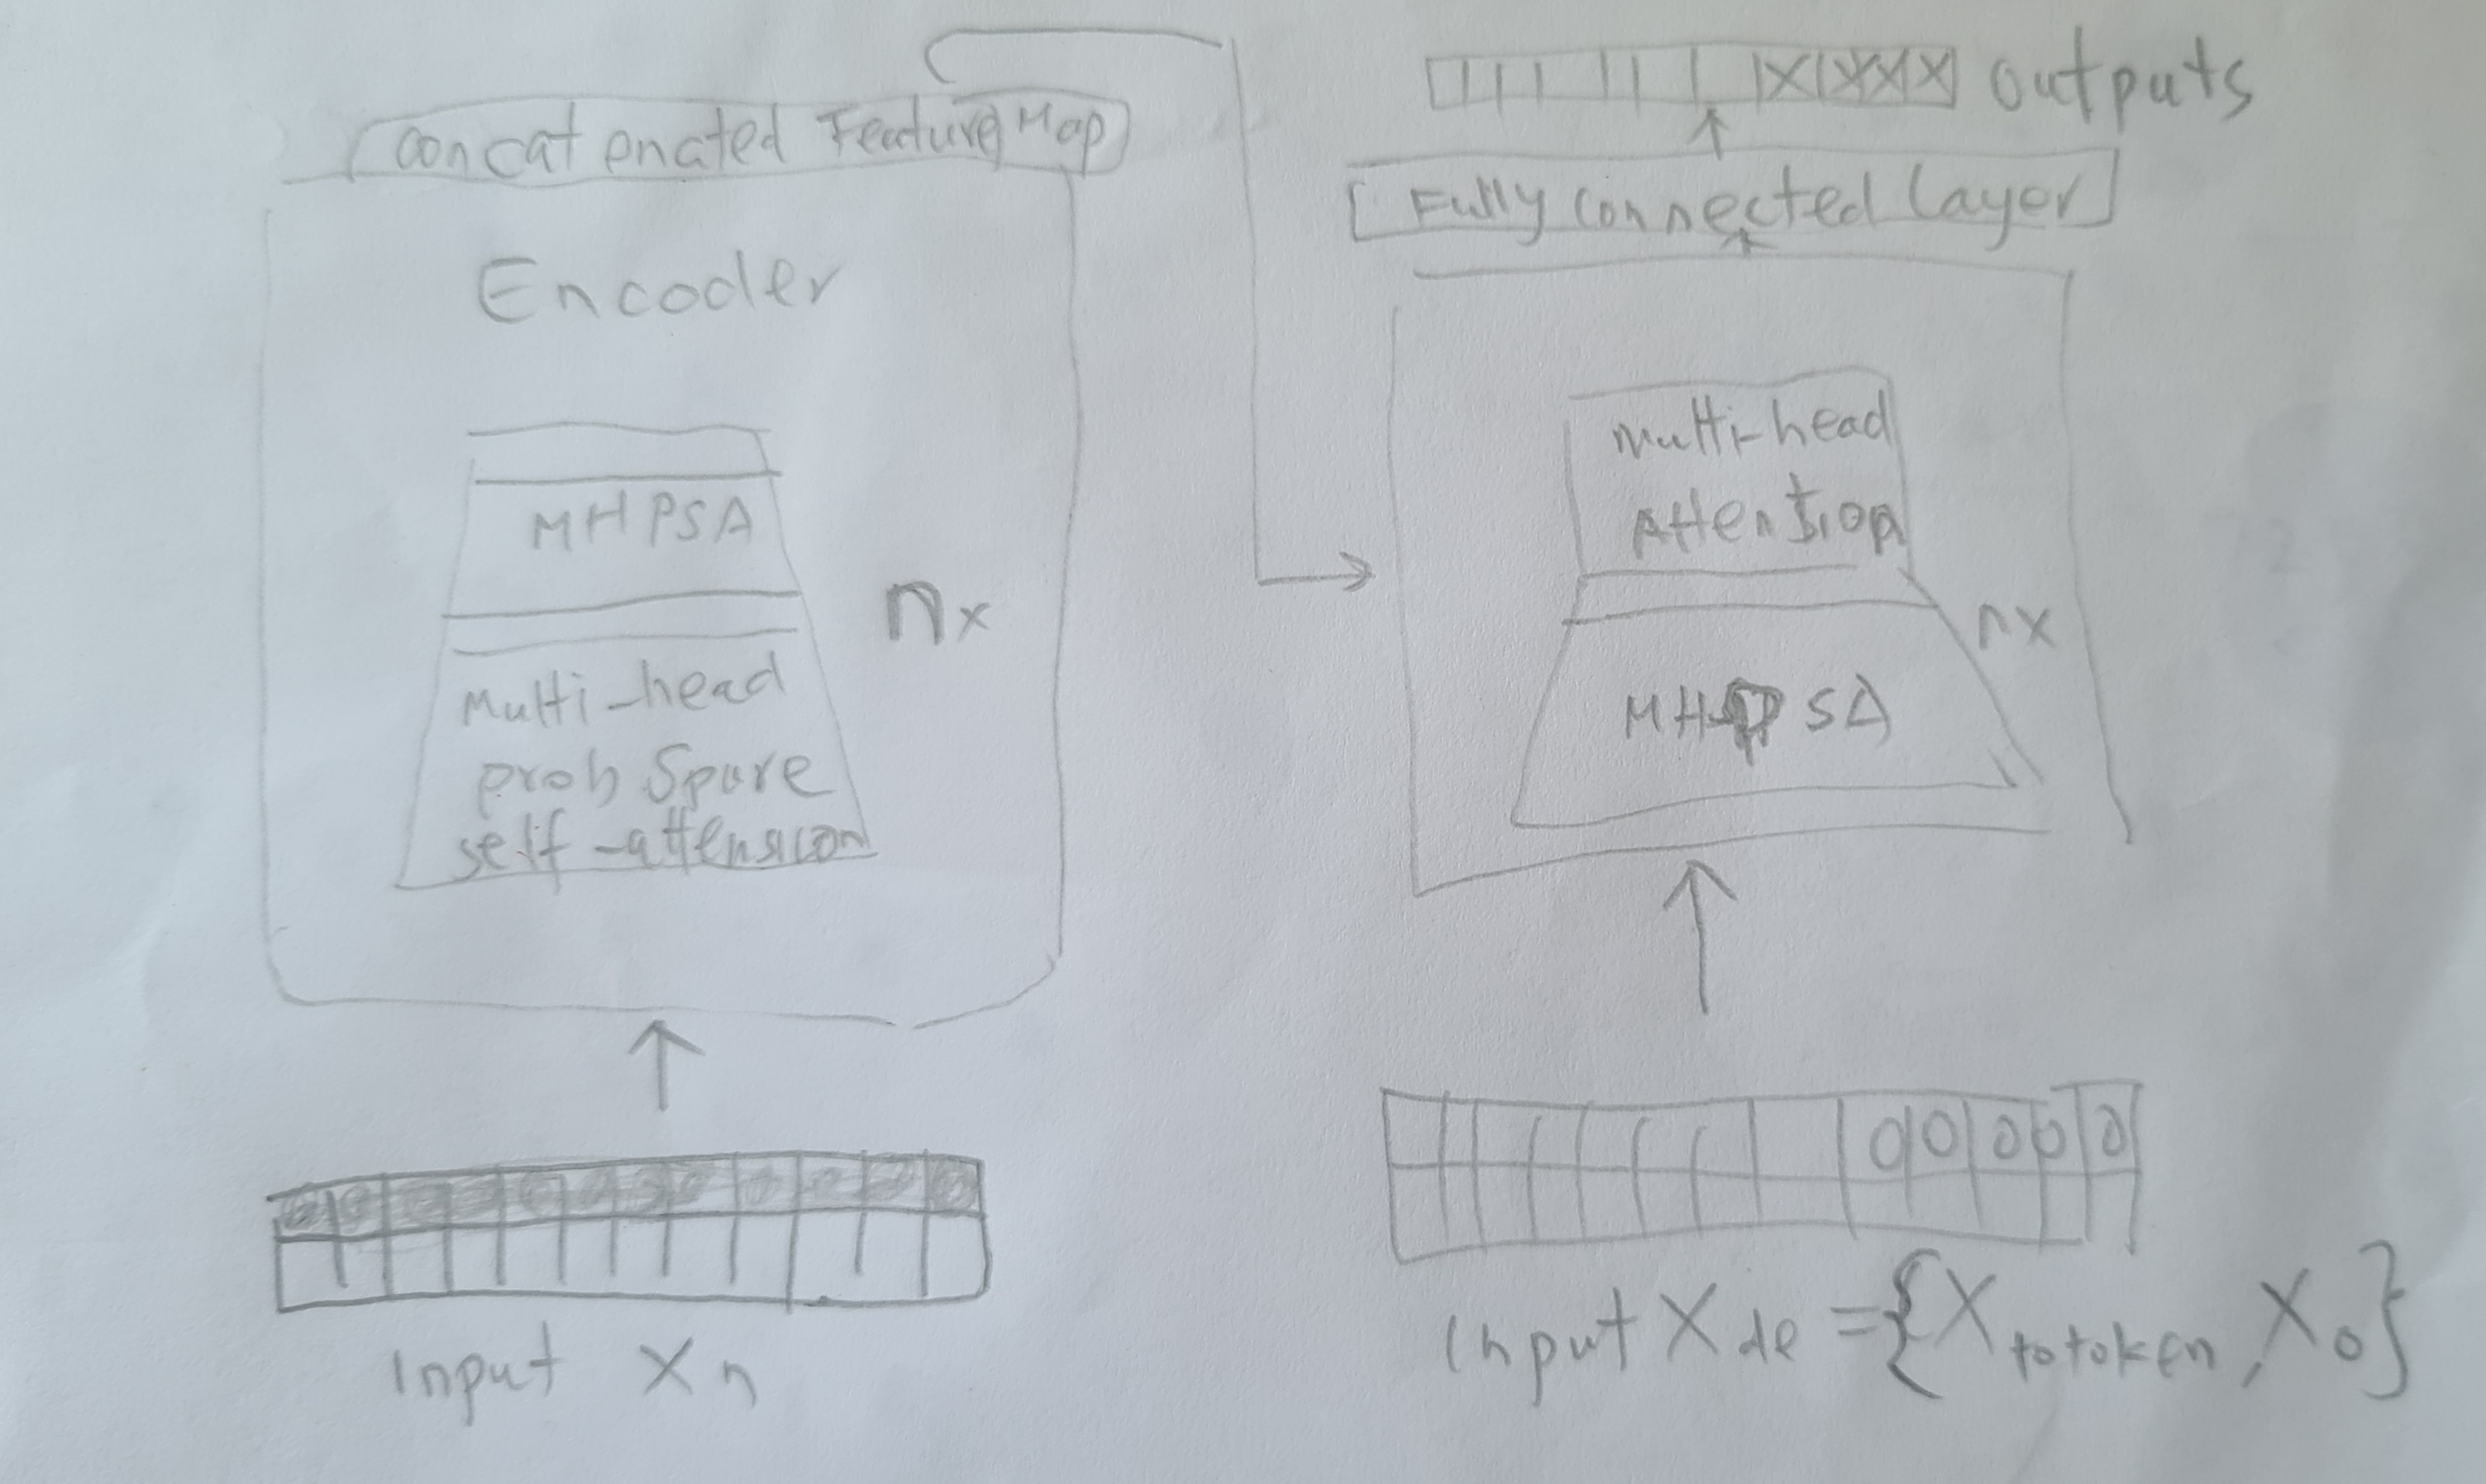 concatenated Feature Map
Encoder
MHPSA
nx
Multi-head
prob Spare
self-attension
Input Xn
outputs
Fully connected layer
Multi-head
Attention
nx
MHPSA
0 0 0 0 0
Input Xde = {Xtotoken, X0}